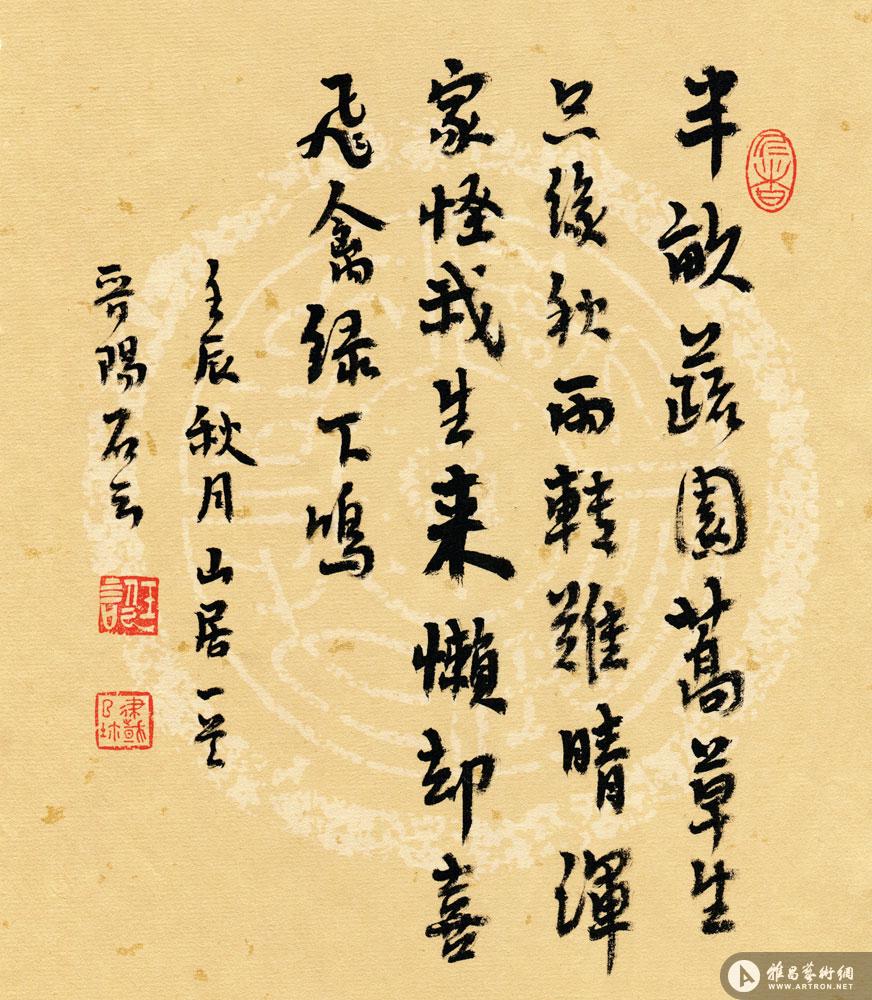 半畝蔬園蒿草生
只緣秋雨轉難晴渾
家怪我生來懶却喜
飛禽緑下鳴
壬辰秋月山居一首
晉陽石云
雅昌藝術網
WWW.ARTRON.NET